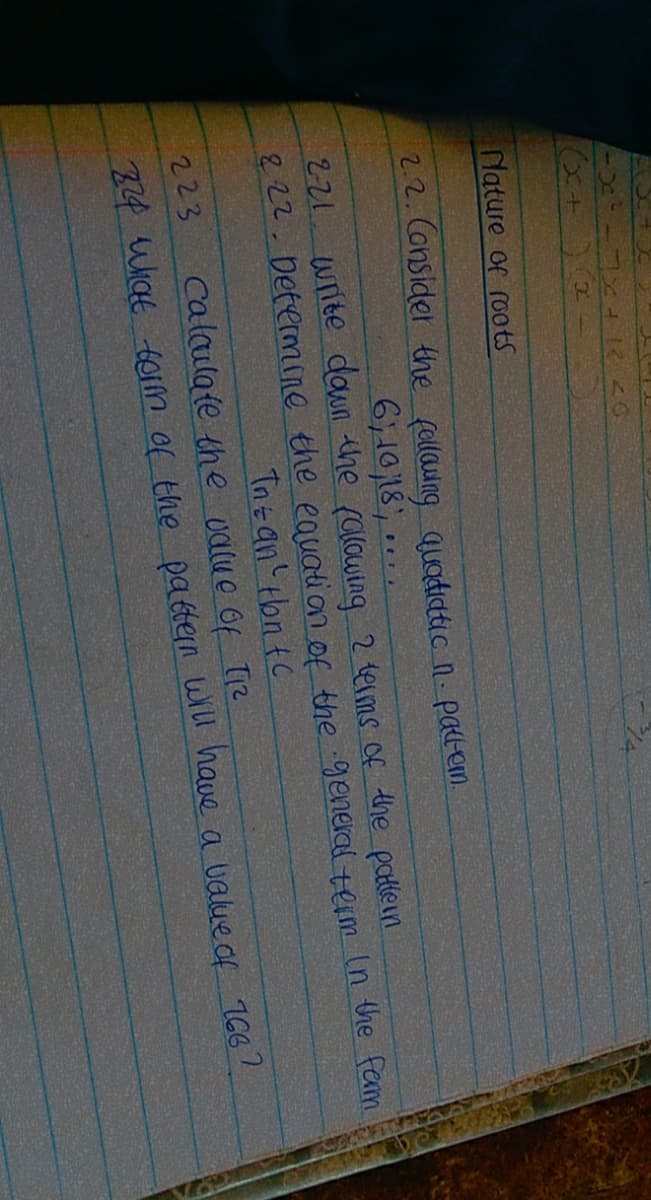 -x² - 7x + 12 < 0
(x + ) (x - )
Nature of roots
2.2. Consider the following quadratic n. pattern.
6; 10; 18; ....
2.21. write down the following 2 terms of the pattern
2.22. Determine the equation of the general term in the form
Tn = an² + bn + c
223 Calculate the value of T12
224 What term of the pattern will have a value of 766?